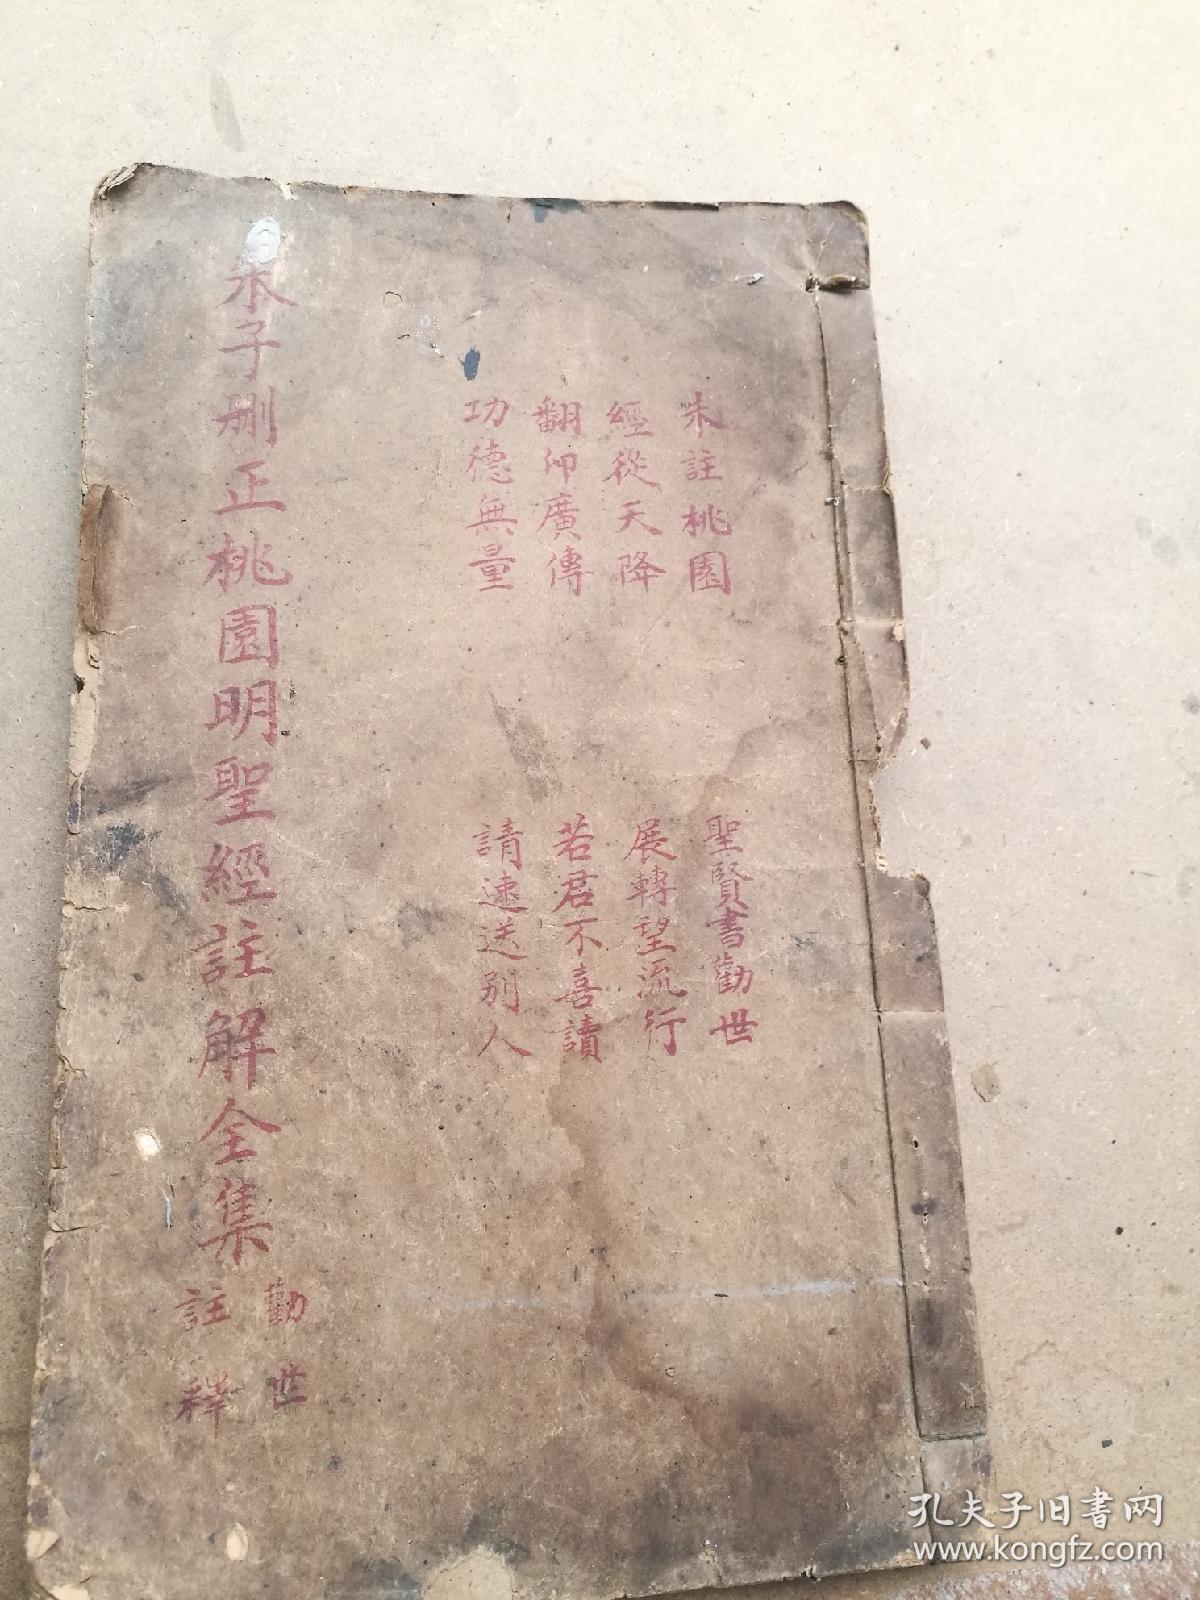 朱註桃園
經從天降
翻印廣傳
功德無量
聖賢書勸世
展轉望流行
若君不喜讀
請速送別人
朱子刪正桃園明聖經註解全集
勸世
註釋
孔夫子旧书网
www.kongfz.com